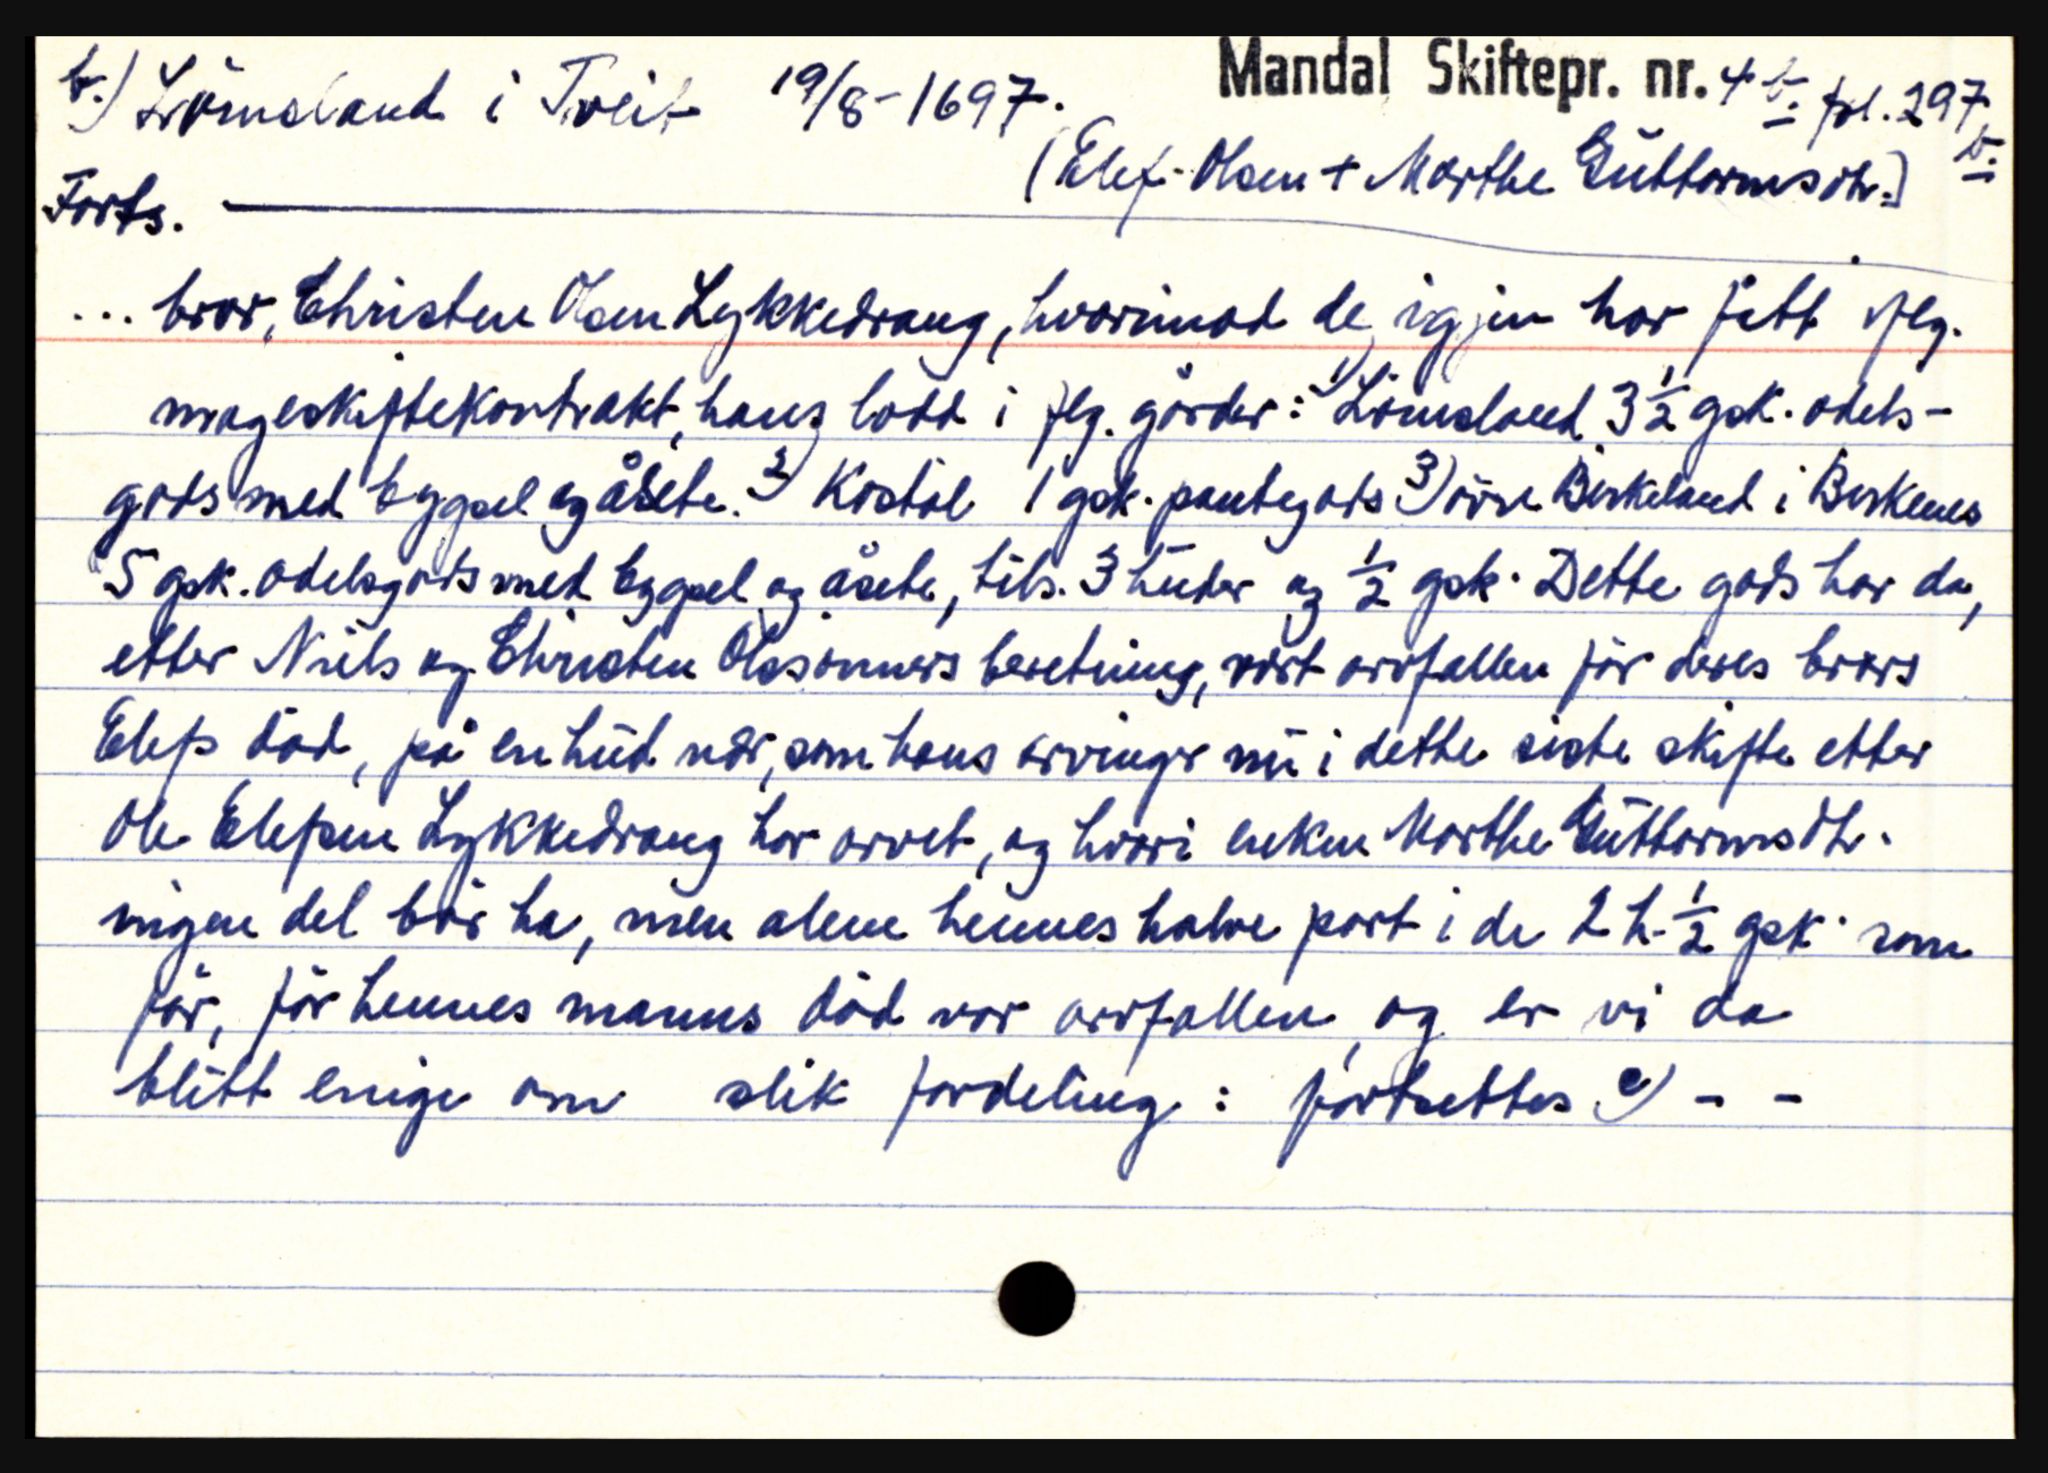 b.) Lömsland i Tveit 19/8-1697. Mandal Skiftepr. nr. 4 b. fol. 297 b.
(Elef Olsen + Marthe Güttormsdtr.)
Forts.
... bror, Christen Olsen Lykkedrang, hvorimod de igjen har fått flg.
mageskiftekontrakt, hans lodd i flg. gårder: 1) Lömsland 3 1/2 gsk. odels-
gods med bygsel og åsete. 2) Kostöl 1 gsk. pantegods 3) övre Birkeland i Birkenes
5 gsk. odelsgods med bygsel og åsete, tils. 3 huder og 1/2 gsk. Dette gods har da,
etter Niels og Christen Olssönners beretning, vært arvfallen för deres brors
Elefs död, på en hud nær, som hans arvinger nu i dette siste skifte etter
Ole Elefsen Lykkedrang har arvet, og hvori enken Marthe Güttormsdtr.
ingen del bör ha, men alene hennes halve part i de 2 h. 1/2 gsk. som
för, för hennes manns död var arvfallen, og er vi da
blitt enige om slik fordeling: fortsettes c) - -